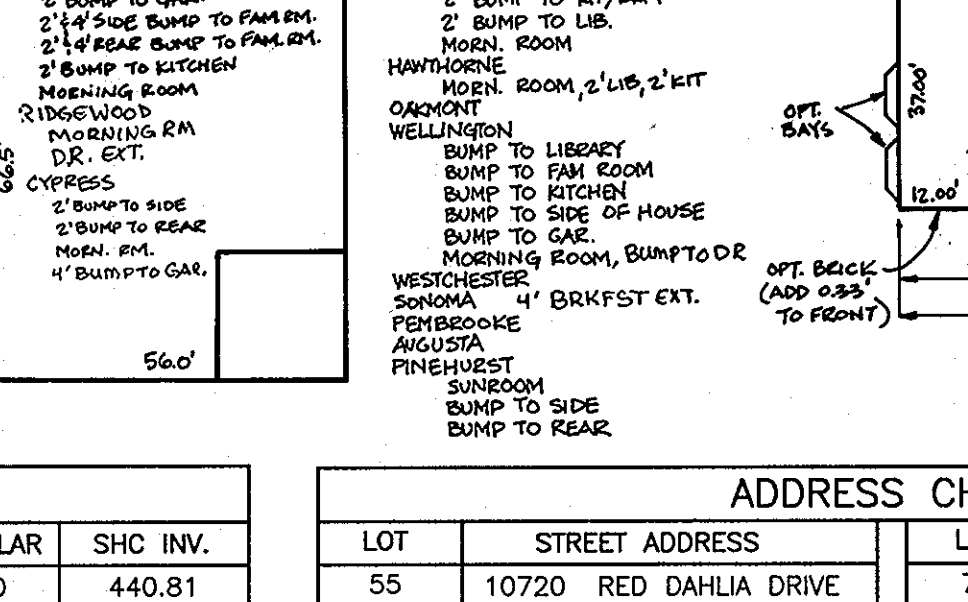 2'&4' SIDE BUMP TO FAM RM.
2'&4' REAR BUMP TO FAM. RM.
2' BUMP TO KITCHEN
MORNING ROOM
RIDGEWOOD
MORNING RM
D.R. EXT.
CYPRESS
2' BUMP TO SIDE
2' BUMP TO REAR
MORN. RM.
4' BUMP TO GAR.
66.5'
56.0'
2' BUMP TO LIB.
MORN. ROOM
HAWTHORNE
MORN. ROOM, 2' LIB, 2' KIT
OAKMONT
WELLINGTON
BUMP TO LIBRARY
BUMP TO FAM ROOM
BUMP TO KITCHEN
BUMP TO SIDE OF HOUSE
BUMP TO GAR.
MORNING ROOM, BUMP TO DR
WESTCHESTER
SONOMA 4' BRKFST EXT.
PEMBROOKE
AUGUSTA
PINEHURST
SUNROOM
BUMP TO SIDE
BUMP TO REAR
OPT.
BAYS
37.00'
12.00'
OPT. BRICK
(ADD 0.33'
TO FRONT)
LAR SHC INV.
440.81
ADDRESS CH
LOT STREET ADDRESS L
55 10720 RED DAHLIA DRIVE